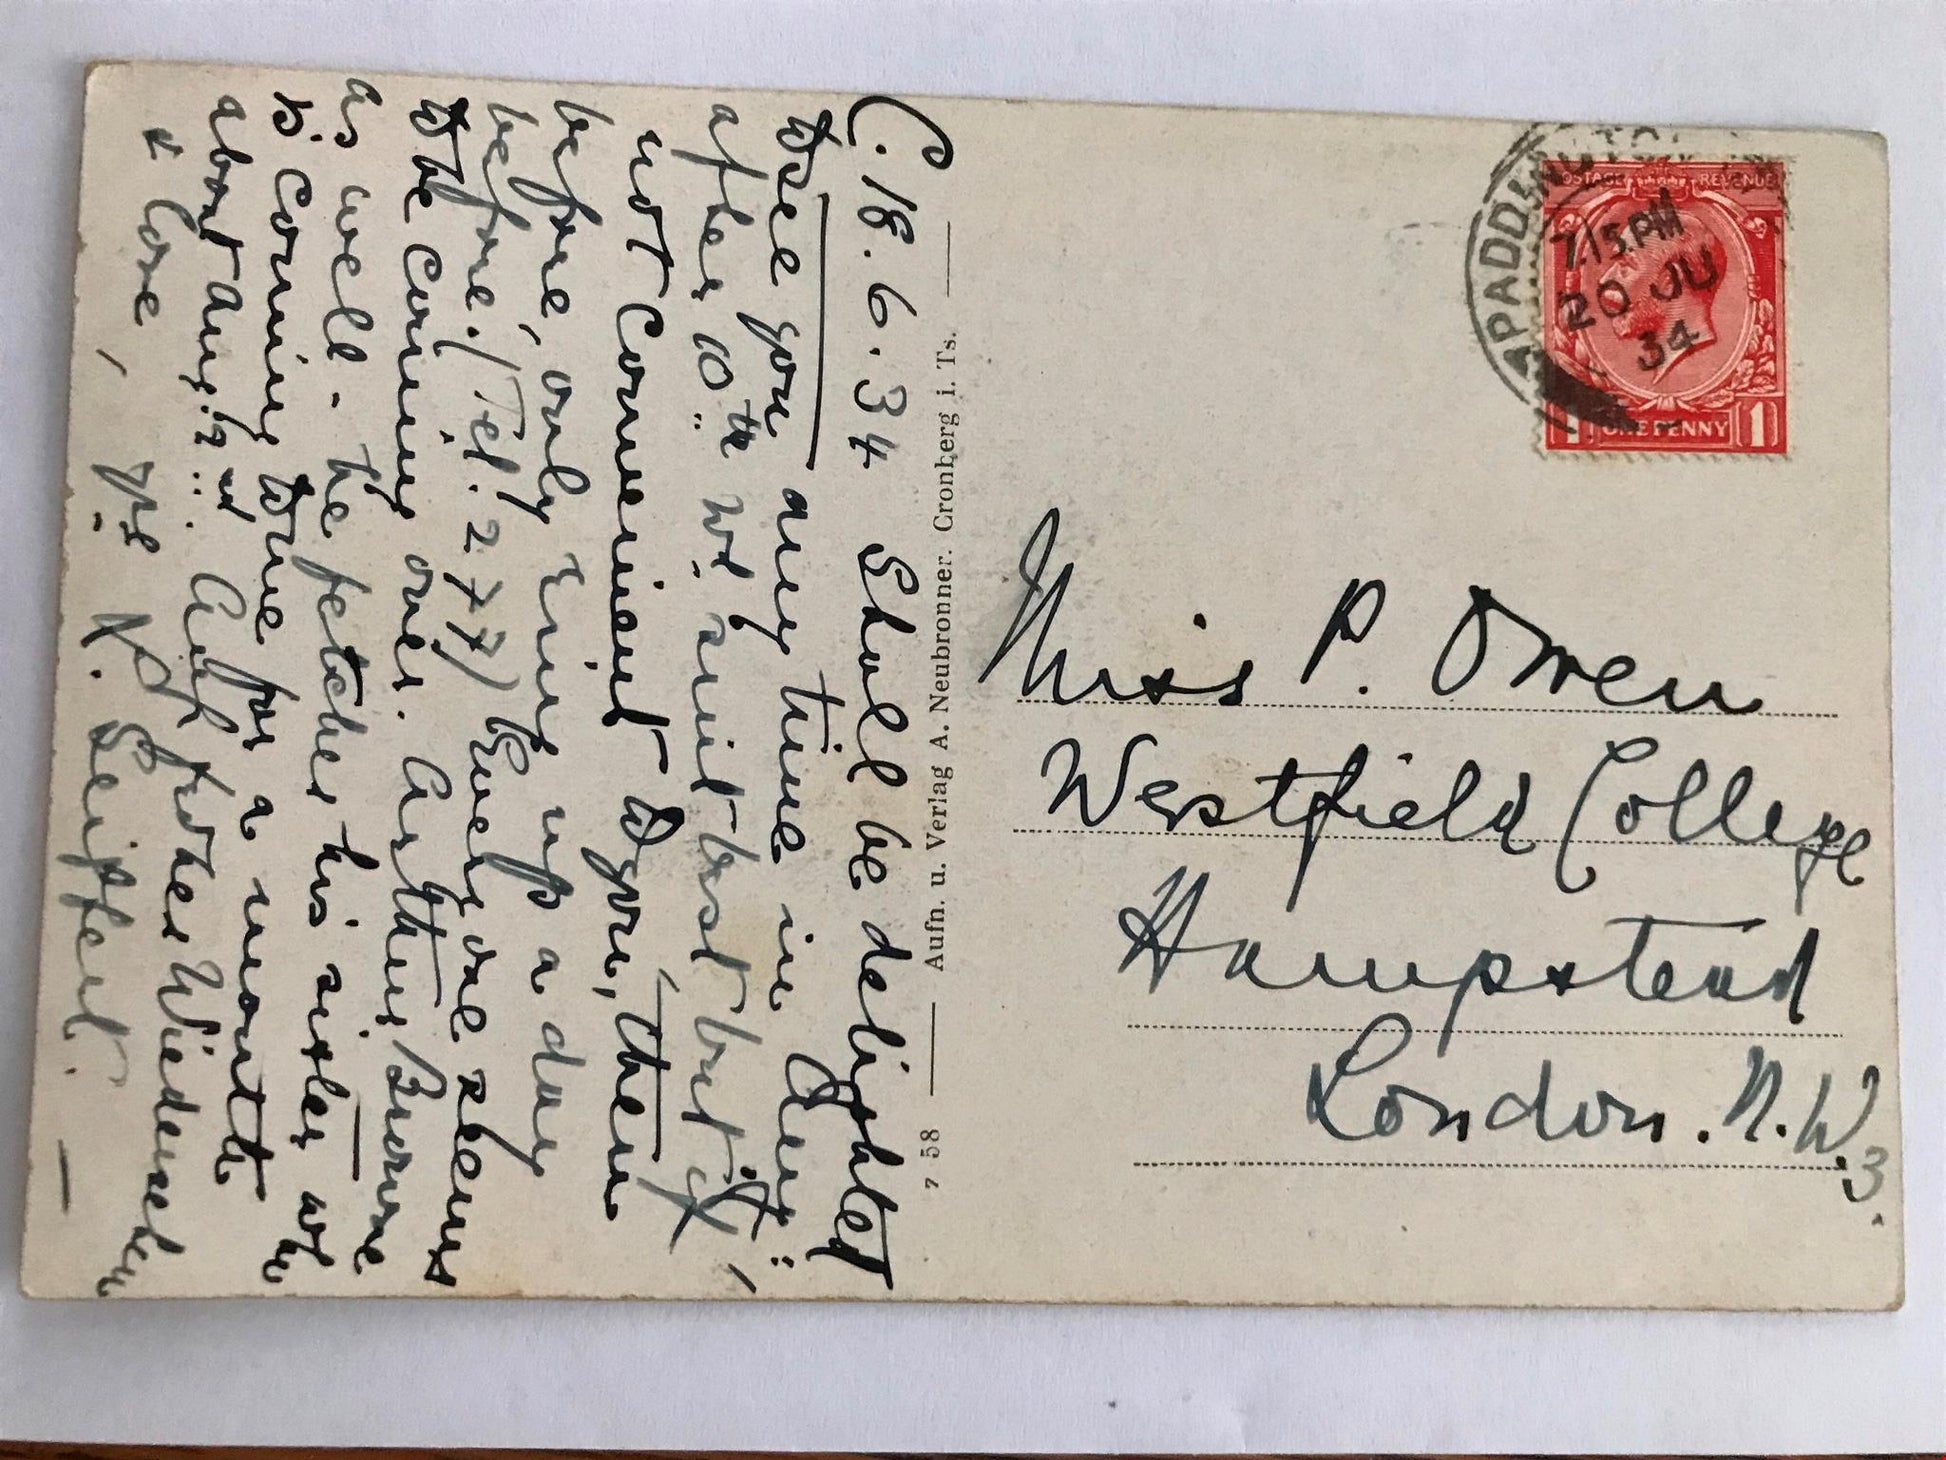 C. 18. 6. 34 Shall be delighted
to see you any time in Aug:
after 10th we suit best but if it,
not convenient to you, then
before, only ring up a day
before. (Tel. 277) Everyone seems
to be coming over. Arthur Browne
as well - he fetches his sister who
is coming to me for a month
about Aug: 2nd. Auf frohes Wiedersehen
& love, yrs K. Seiffert.
7 58 Aufn. u. Verlag A. Neubronner. Cronberg i. Ts.
PADDINGTON
7.15 PM
20 JU
34
POSTAGE REVENUE
1 ONE PENNY 1
Miss P. Owen
Westfield College
Hampstead
London. N.W.3.